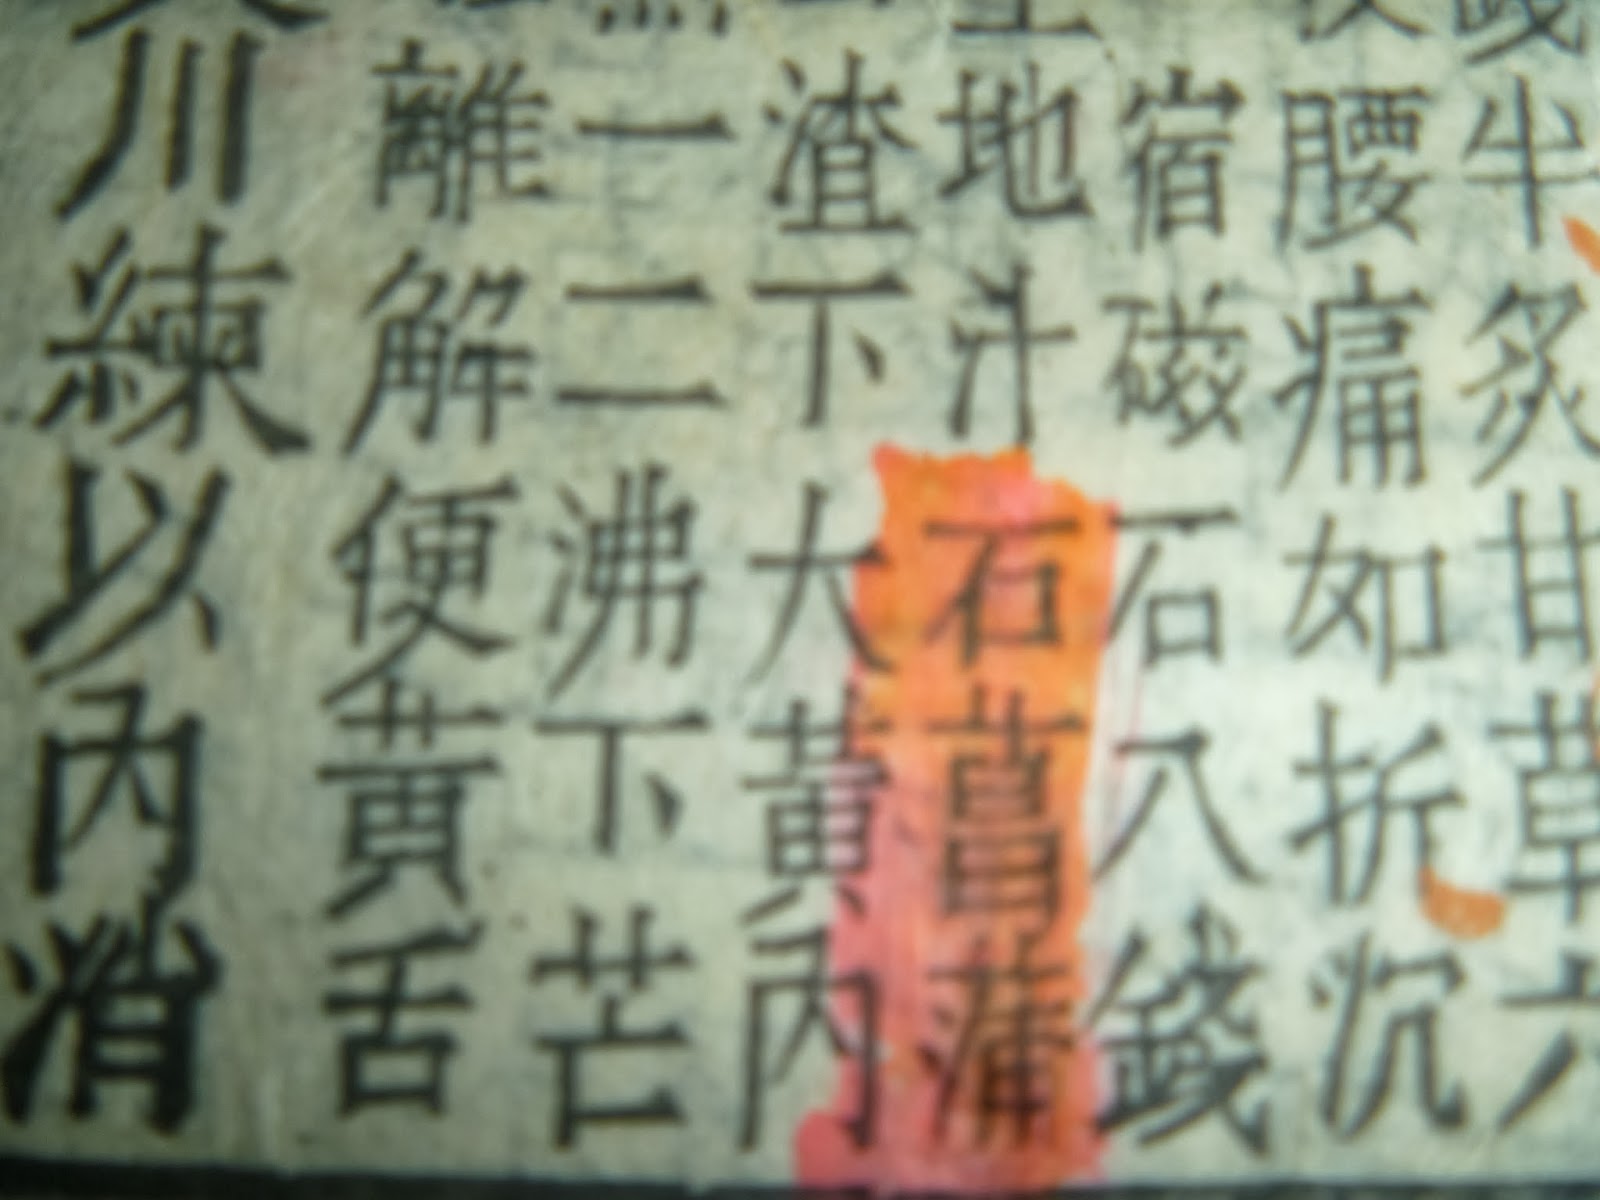 牛炙甘草六
腰痛如折沉
宿磁石八錢
地汁石菖蒲
渣下大黃內
一二沸下芒
離解便黃舌
川練以內消